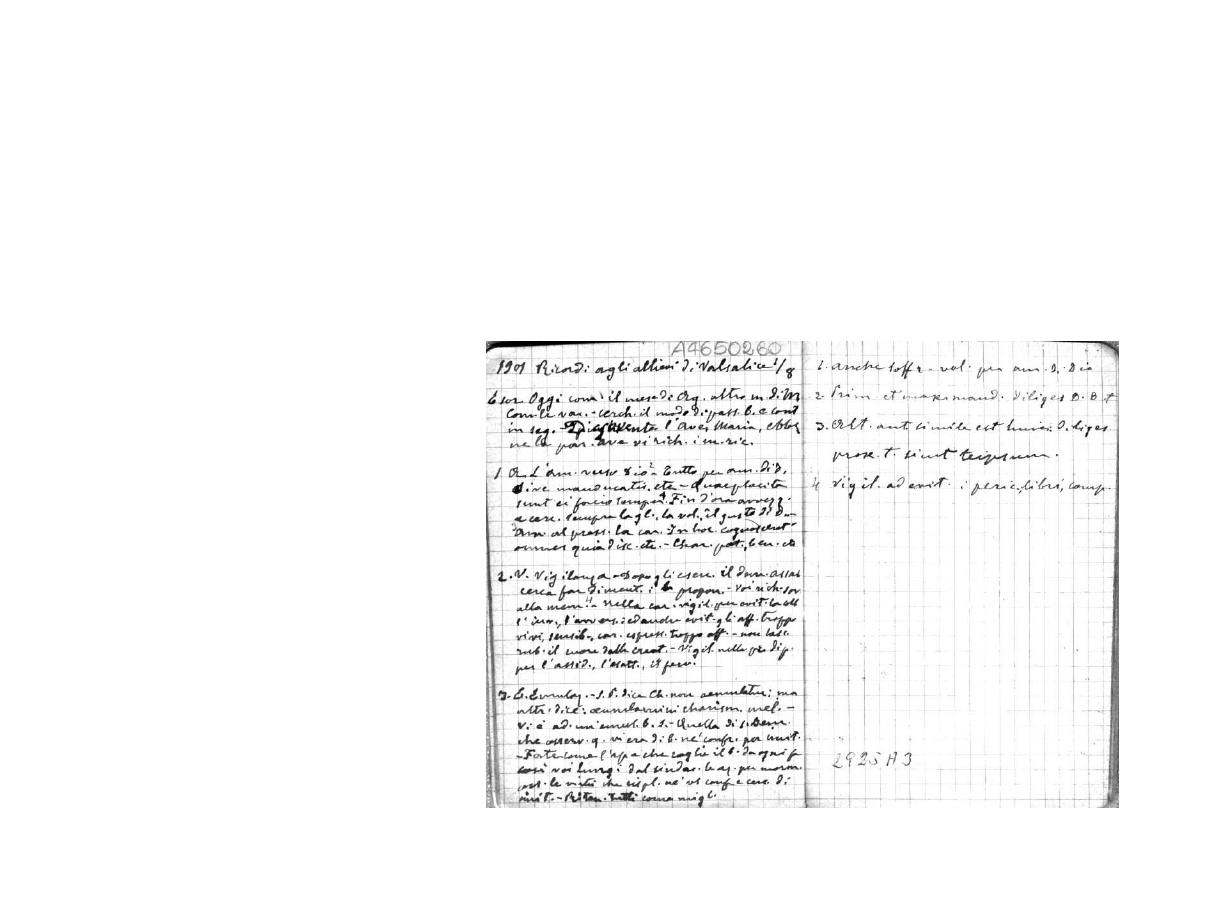 A4650260
1901 Ricordi agli allievi di Valsalice 1/8
Esor. Oggi com. il mese di Ag. altro m. di M
Com. le vac. - cerch. il modo di pass. b. e cont
in seg. - diventa l'Ave, Maria, ebbe
ne la par. ave vi rich. i m. ric.
1. A. L'am. verso Dio - Tutto per am. di D.
sive manducatis, etc. - Quae placita
sunt ei facio semper. Fin d'ora avvezz.
e cerc. sempre la gl., la vol., il gusto di D. -
Am. al pross. la car. In hoc cognoscent
omnes quia disc. etc. - Char. pat., ben. e
2. V. Vigilanza - Dopo gli eserc. il dem. assal
cerca far diment. i propon. - Voi rich. sov
alla mem. - Nella car. vigil. per evit. la
l'ira, l'avvers.: ed anche evit. gli aff. troppo
vivi, sensib., car. espress. troppo aff. - non lasc.
rub. il cuore dalle creat. - Vigil. nelle p. di p.
per l'assid., l'esatt., il ferv.
3. E. Emulaz. - S. P. dice Ch. non aemulatur; ma
altr. dice: aemulamini charism. mel. -
Vi è ad. un'emul. b. - Quella di S. Bern.
che osserv. q. vi era di b. ne' confr. per imit.
- Forte come l'ape che coglie il b. da ogni f
così voi lungi dal sindac. le az. per morm.
oss. le virtù che ispl. ne' vs conf. e cerc. di
imit. - Riten. tutti come migl.
1. anche soffr. vol. per am. di Dio
2. Prim. et maximum mand. Diliges D. D. t
3. Alt. aut. simile est huic: Diliges
prox. t. sicut teipsum.
4. Vigil. ad evit. i peric., libri, comp.
2925 A3